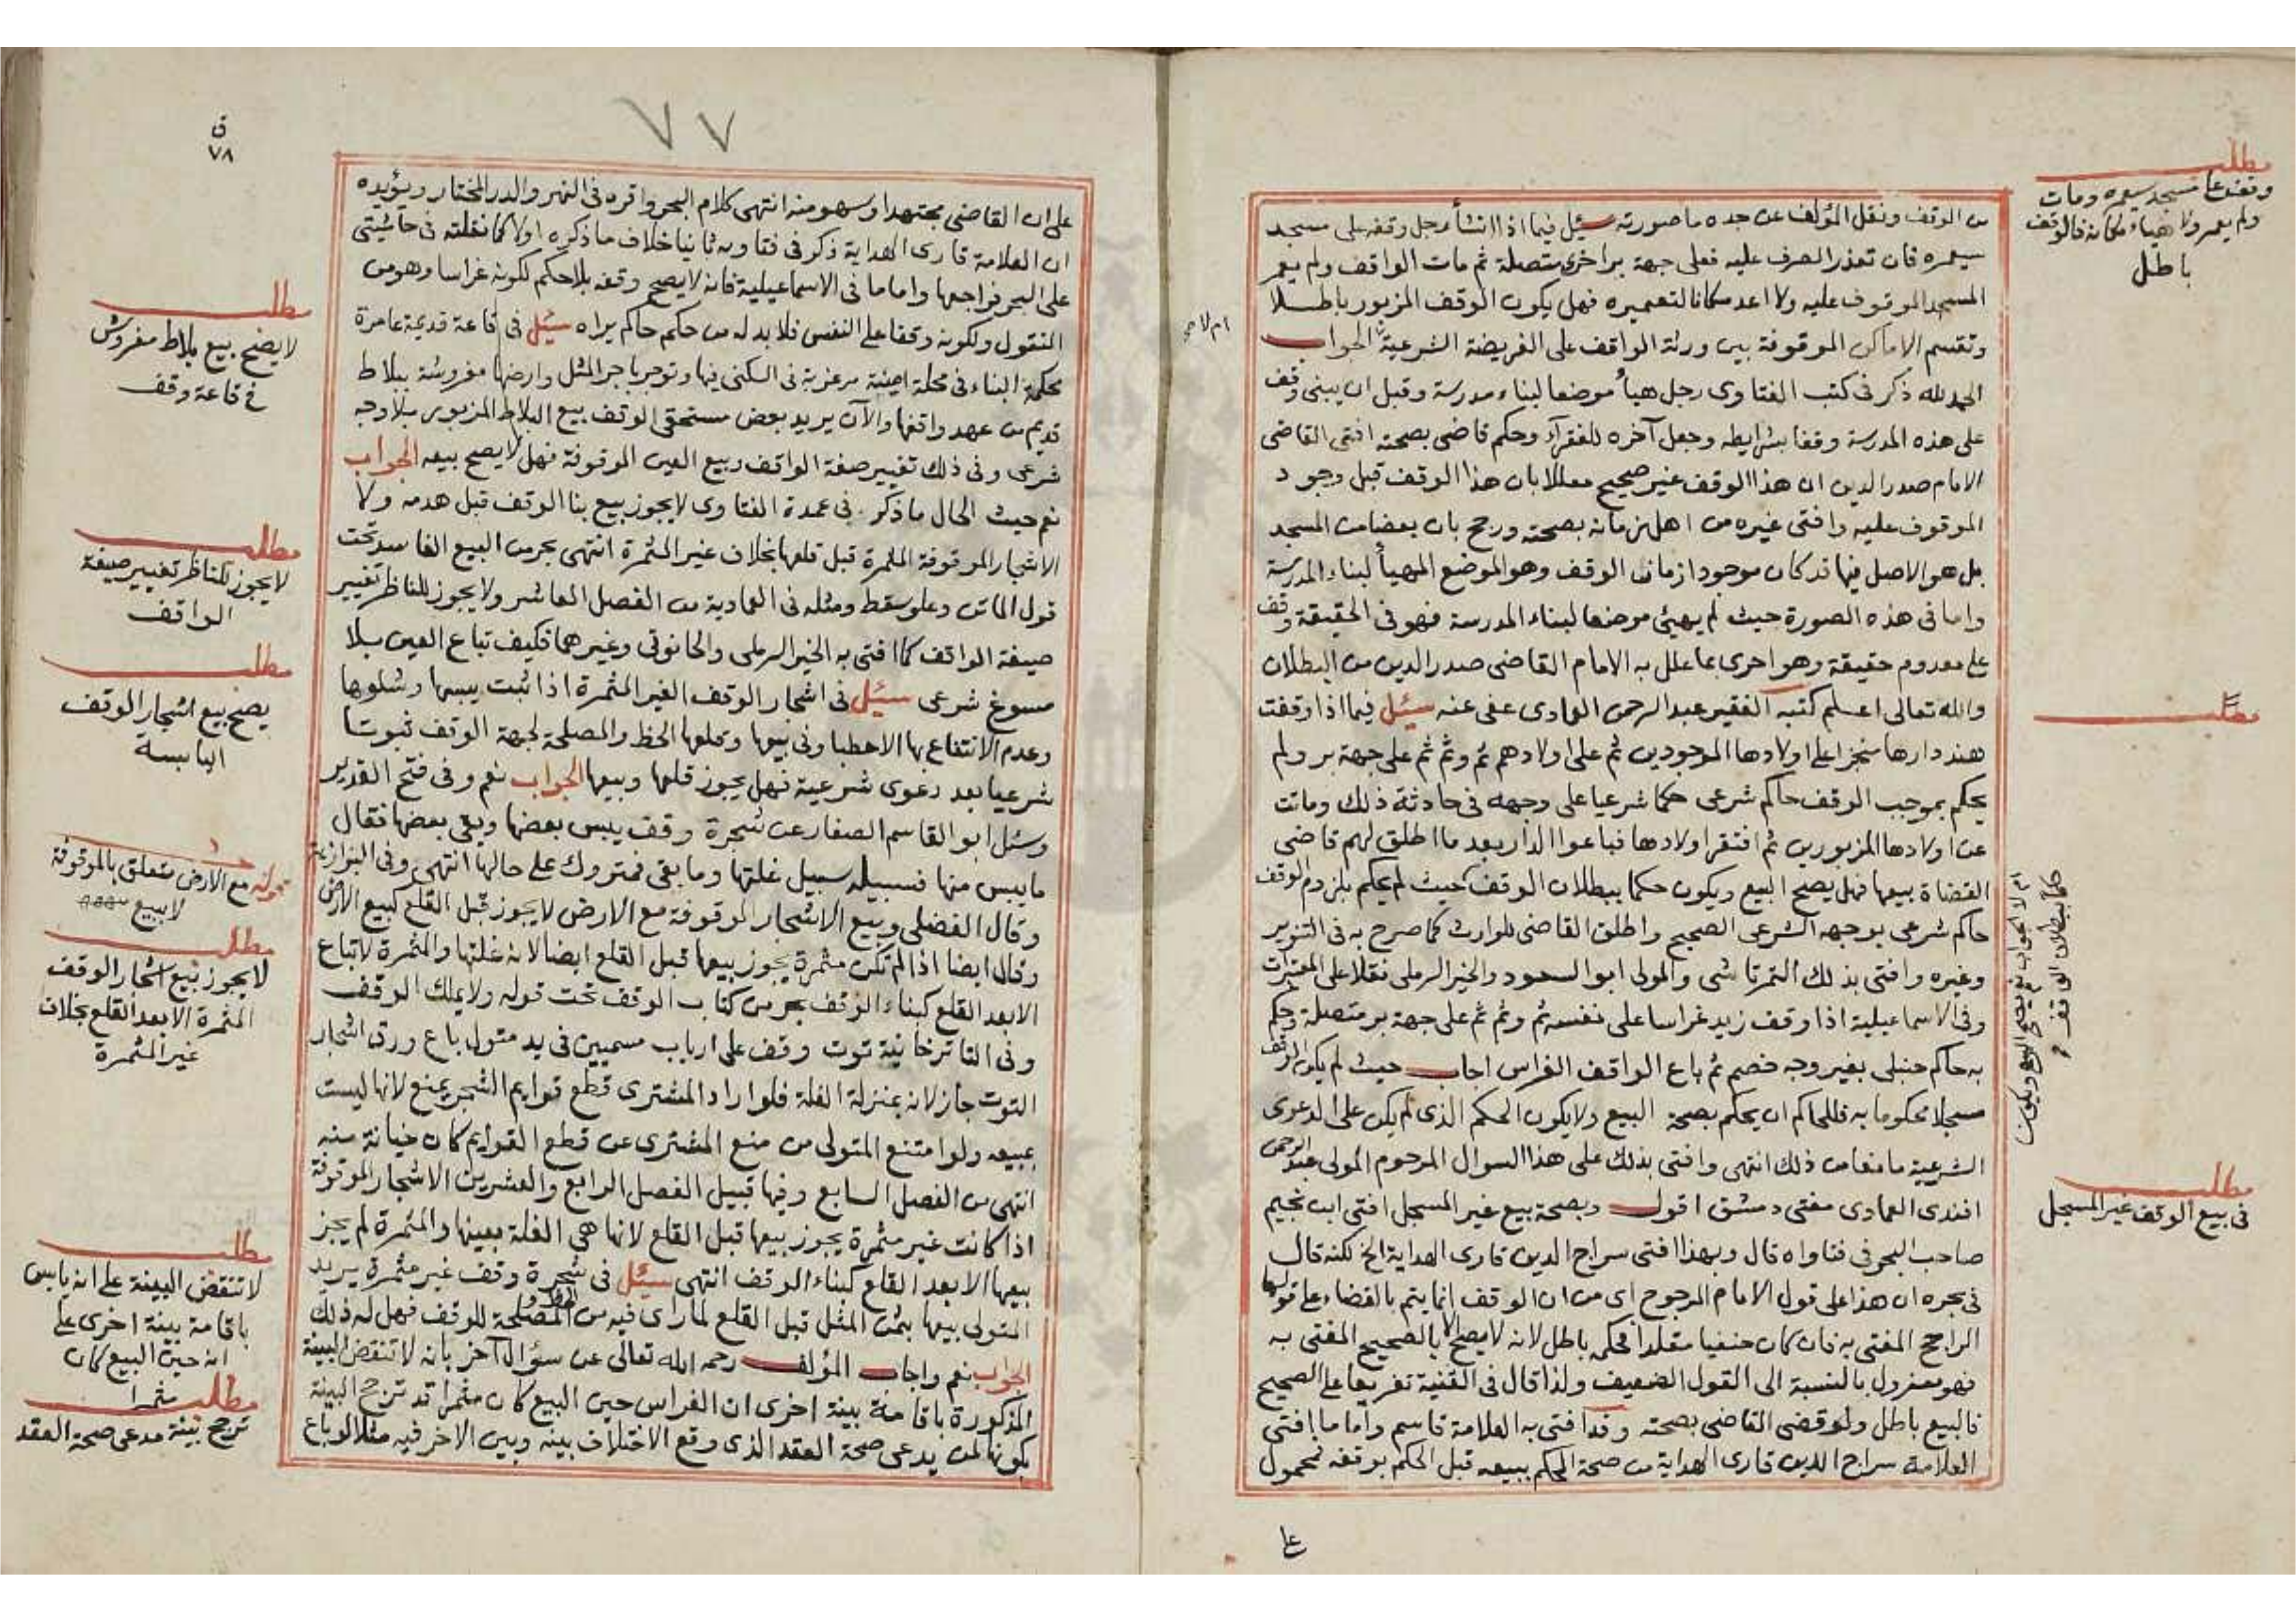 مطلب
وقف على مسجد سيعمره ومات
ولم يعمر ولا هيأ مكانه فالوقف
باطل
من الوقف ونقل المؤلف عن جده ما صورته سئل فيما اذا انشأ رجل وقفه على مسجد
سيعمره فان تعذر الصرف عليه فعلى جهة بر اخرى متصلة ثم مات الواقف ولم يعمر
المسجد الموقوف عليه ولا اعد مكانا لتعميره فهل يكون الوقف المزبور باطلا
وتقسم الاماكن الموقوفة بين ورثة الواقف على الفريضة الشرعية الجواب
ام لا صح
الحمد لله ذكر في كتب الفتاوى رجل هيأ موضعا لبناء مدرسة وقبل ان يبنى وقف
على هذه المدرسة وقفا بشرايطه وجعل آخره للفقراء وحكم قاضى بصحته افتى القاضى
الامام صدر الدين ان هذا الوقف غير صحيح معللا بان هذا الوقف قبل وجود
الموقوف عليه وافتى غيره من اهل زمانه بصحته ورجح بان بعضا من المسجد
بل هو الاصل فيها قد كان موجودا زمان الوقف وهو الموضع المهيأ لبناء المدرسة
واما في هذه الصورة حيث لم يهيئ موضعا لبناء المدرسة فهو في الحقيقة وقف
على معدوم حقيقة وهو احرى بما علل به الامام القاضى صدر الدين من البطلان
والله تعالى اعلم كتبه الفقير عبد الرحمن العمادى عفى عنه سئل فيما اذا وقفت
مطلب
هند دارها منجزا على اولادها الموجودين ثم على اولادهم ثم وثم ثم على جهة بر ولم
يحكم بموجب الوقف حاكم شرعى حكما شرعيا على وجهه في حادثة ذلك وماتت
عن اولادها المزبورين ثم افتقر اولادها فباعوا الدار بعد ما اطلق لهم قاضى
القضاة بيعها فهل يصح البيع ويكون حكما ببطلان الوقف حيث لم يحكم بلزوم الوقف
ام لا الجواب نعم يصح البيع ويكون
حكما ببطلان الوقف
حاكم شرعى بوجهه الشرعى الصحيح واطلق القاضى للوارث كما صرح به في التنوير
وغيره وافتى بذلك التمرتاشى والمولى ابو السعود والخير الرملى نقلا على المعتبرات
وفى الاسماعيلية اذا وقف زيد غراسا على نفسه ثم وثم ثم على جهة بر متصلة وحكم
به حاكم حنبلى بغير وجه خصم ثم باع الواقف الغراس اجاب حيث لم يكن الوقف
مسجلا محكوما به فللحاكم ان يحكم بصحة البيع ولا يكون الحكم الذى لم يكن على الدعوى
الشرعية مانعا من ذلك انتهى وافتى بذلك على هذا السوال المرحوم المولى عبد الرحمن
افندى العمادى مفتى دمشق اقول وبصحة بيع غير المسجل افتى ابن نجيم
مطلب
في بيع الوقف غير المسجل
صاحب البحر في فتاواه قال وبهذا افتى سراج الدين قارى الهداية الخ لكنه قال
في بحره ان هذا على قول الامام المرجوح اى من ان الوقف انما يتم بالقضاء على قولهما
الراجح المفتى به فان كان حنفيا مقلدا فحكمه باطل لانه لا يصح الا بالصحيح المفتى به
فهو معزول بالنسبة الى القول الضعيف ولذا قال في القنية تفريعا على الصحيح
فالبيع باطل ولو قضى القاضى بصحته وقد افتى به العلامة قاسم واما ما افتى
العلامة سراج الدين قارى الهداية من صحة الحكم ببيعه قبل الحكم بوقفه فمحمول
على
٧٧
ق
٧٨
على ان القاضى مجتهد او سهو منه انتهى كلام البحر واقره في النهر والدر المختار ويؤيده
ان العلامة قارى الهداية ذكر في فتاويه ثانيا خلاف ما ذكره اولا كما نقلته في حاشيتى
على البحر فراجعها واما ما في الاسماعيلية فانه لا يصح وقفه بلا حكم لكونه غراسا وهو من
المنقول ولكونه وقفا على النفس فلا بد له من حكم حاكم يراه سئل في قاعة قديمة عامرة
مطلب
لا يصح بيع بلاط مفروش
في قاعة وقف
محكمة البناء في محلة امينة مرغوبة في السكنى فيها وتوجر باجر المثل وارضها مفروشة ببلاط
قديم من عهد واقفها والآن يريد بعض مستحقى الوقف بيع البلاط المزبور بلا وجه
شرعى وفى ذلك تغيير صفة الواقف وبيع العين الموقوفة فهل لا يصح بيعه الجواب
نعم حيث الحال ما ذكر في عمدة الفتاوى لا يجوز بيع بنا الوقف قبل هدمه ولا
الاشجار الموقوفة المثمرة قبل قلعها بخلاف غير المثمرة انتهى بحر من البيع الفاسد تحت
مطلب
لا يجوز للناظر تغيير صيغة
الواقف
قول الماتن وعلو سقط ومثله في العمادية من الفصل العاشر ولا يجوز للناظر تغيير
صيغة الواقف كما افتى به الخير الرملى والحانوتى وغيرهما فكيف تباع العين بلا
مسوغ شرعى سئل في اشجار الوقف الغير المثمرة اذا ثبت يبسها وشلوها
مطلب
يصح بيع اشجار الوقف
اليابسة
وعدم الانتفاع بها الا حطبا وفى بيعها وقلعها الحظ والمصلحة لجهة الوقف ثبوتا
شرعيا بعد دعوى شرعية فهل يجوز قلعها وبيعها الجواب نعم وفى فتح القدير
وسئل ابو القاسم الصفار عن شجرة وقف يبس بعضها وبقى بعضها فقال
ما يبس منها فسبيله سبيل غلتها وما بقى فمتروك على حالها انتهى وفى البزازية
قوله مع الارض متعلق بالموقوفة
لا ببيع
وقال الفضلى وبيع الاشجار الموقوفة مع الارض لا يجوز قبل القلع كبيع الارض
وقال ايضا اذا لم تكن مثمرة يجوز بيعها قبل القلع ايضا لانه غلتها والمثمرة لا تباع
مطلب
لا يجوز بيع اشجار الوقف
المثمرة الا بعد القلع بخلاف
غير المثمرة
الا بعد القلع كبناء الوقف بحر من كتاب الوقف تحت قوله ولا يملك الوقف
وفى التاترخانية توت وقف على ارباب مسميين في يد متول باع ورق اشجار
التوت جاز لانه بمنزلة الغلة فلو اراد المشترى قطع قوايم الشجر يمنع لانها ليست
بمبيعه ولو امتنع المتولى من منع المشترى عن قطع القوايم كان خيانة منه
انتهى من الفصل السابع وفيها قبيل الفصل الرابع والعشرين الاشجار الموقوفة
اذا كانت غير مثمرة يجوز بيعها قبل القلع لانها هى الغلة بعينها والمثمرة لم يجز
بيعها الا بعد القلع كبناء الوقف انتهى سئل في شجرة وقف غير مثمرة يريد
مطلب
لا تنقض البينة على انه يابس
باقامة بينة اخرى على
انه حين البيع كان
مثمرا
المتولى بيعها بثمن المثل قبل القلع لما راى فيه من المصلحة للوقف فهل له ذلك
الجواب نعم واجاب المؤلف رحمه الله تعالى عن سؤال آخر بانه لا تنتقض البينة
المذكورة باقامة بينة اخرى ان الغراس حين البيع كان مثمرا قد ترجح البينة
بكونها لمن يدعى صحة العقد الذى وقع الاختلاف بينه وبين الاخر فيه مثلا لو باع
مطلب
ترجح بينة مدعى صحة العقد